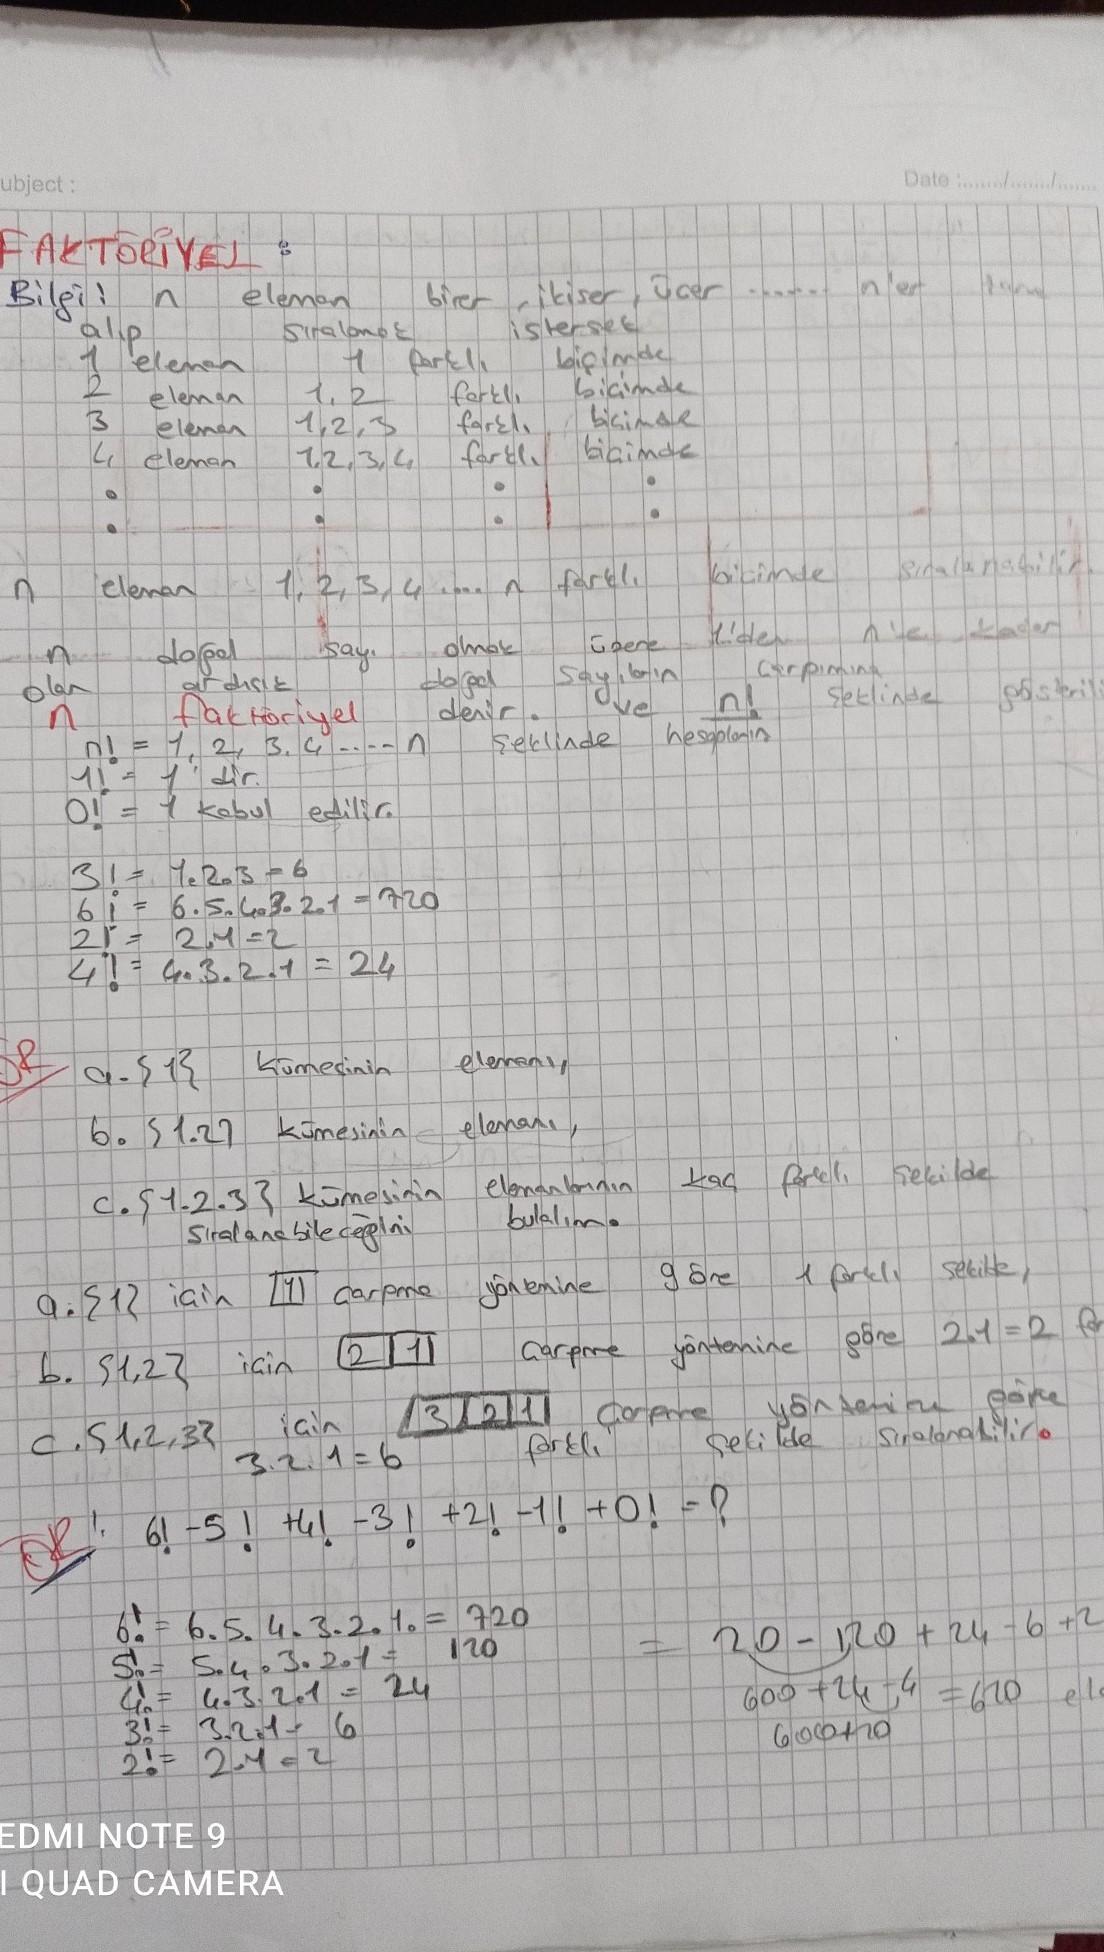 ubject :
Date :....../....../......
FAKTÖRİYEL :
Bilgi! n eleman birer, ikişer, üçer ....... n'er
alıp sıralamak istersek
1 eleman 1 farklı biçimde
2 eleman 1,2 farklı biçimde
3 eleman 1,2,3 farklı biçimde
4 eleman 1,2,3,4 farklı biçimde
n eleman 1,2,3,4 .... n farklı biçimde sıralanabilir.
n doğal sayı olmak üzere 1'den n'ye kadar
olan ardışık doğal sayıların çarpımına
n faktöriyel denir. ve n! şeklinde gösterili
n! = 1, 2, 3. 4 ..... n şeklinde hesaplanır
1! = 1 dir.
0! = 1 kabul edilir.
3! = 1.2.3 = 6
6! = 6.5.4.3.2.1 = 720
2! = 2.1 = 2
4! = 4.3.2.1 = 24
ÖR a. {1} kümesinin elemanı,
b. {1.2} kümesinin elemanı,
c. {1.2.3} kümesinin elemanlarının kaç farklı şekilde
sıralanabileceğini bulalım.
a. {1} için [1] çarpma yönemine göre 1 farklı şekilde,
b. {1,2} için [2][1] çarpma yöntemine göre 2.1=2 far
c. {1,2,3} için [3][2][1] çarpma yöntemine göre
3.2.1=6 farklı şekilde sıralanabilir.
ÖR! 6! - 5! + 4! - 3! + 2! - 1! + 0! = ?
6! = 6.5.4.3.2.1. = 720
5! = 5.4.3.2.1 = 120
4! = 4.3.2.1 = 24
3! = 3.2.1 = 6
2! = 2.1 = 2
= 720 - 120 + 24 - 6 + 2
600 + 24 - 4 = 620
600+20
EDMI NOTE 9
I QUAD CAMERA